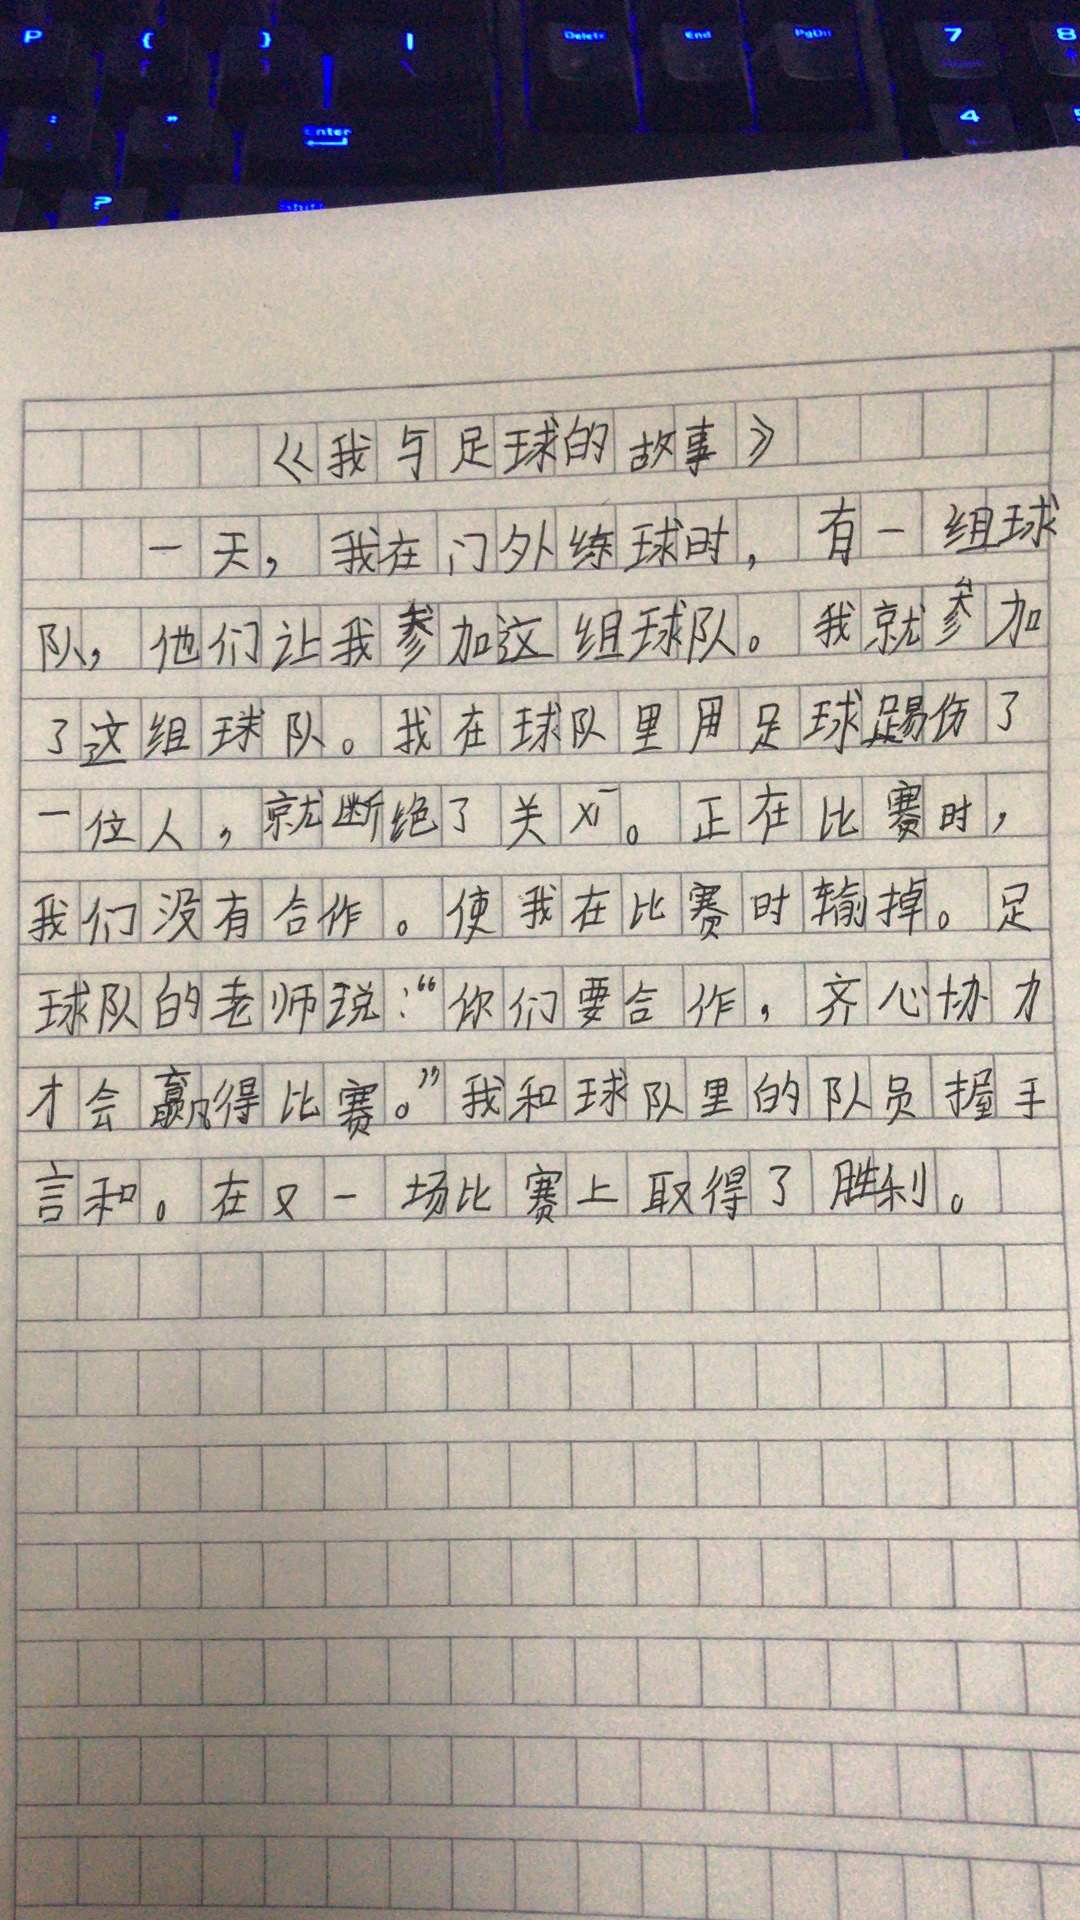 P { } | Delete End PgDn 7 8
[ ] \
: " Enter 4 5
? Shift
《我与足球的故事》
一天，我在门外练球时，有一组球
队，他们让我参加这组球队。我就参加
了这组球队。我在球队里用足球踢伤了
一位人，就断绝了关 。正在比赛时，
我们没有合作。使我在比赛时输掉。足
球队的老师说：“你们要合作，齐心协力
才会赢得比赛。”我和球队里的队员握手
言和。在又一场比赛上取得了胜利。